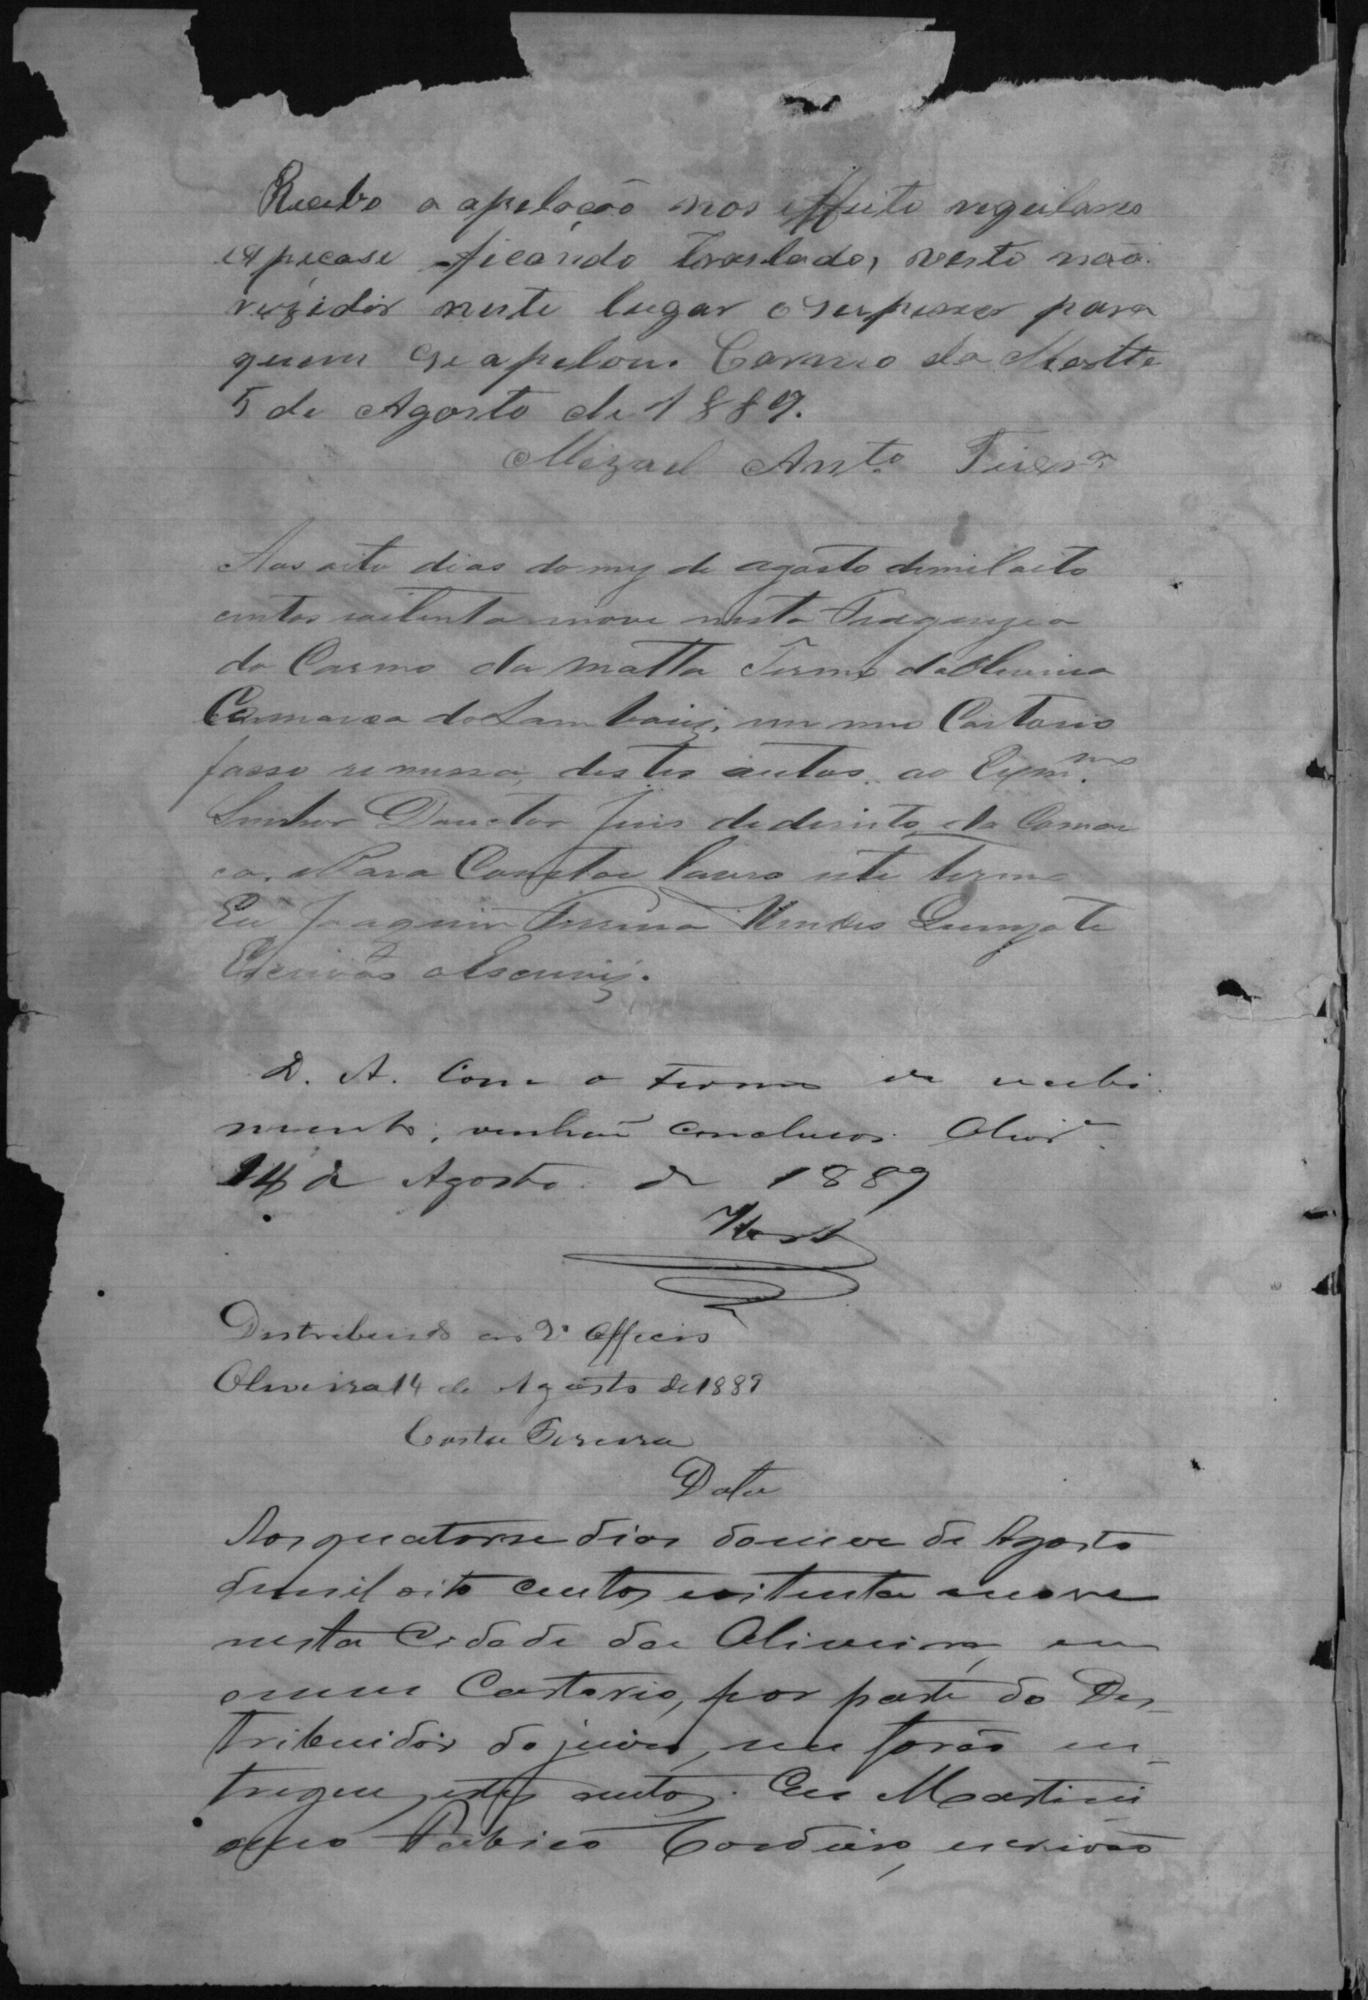 Recebo a apelação nos effeito regulares
espeçase ficando traslado, visto não
rezidir neste lugar o superior para
quem se apelou. Carmo da Matta
5 de Agosto de 1889.
Mizael Ant.º Teixr.ª
Aos oito dias do mez de agosto de mil oito
centos eoitenta nove nesta Freguezia
do Carmo da Matta Termo da Oliveira
Comarca do em meu Cartorio
fasso remessa destes autos ao Exm.mo
Senhor Douctor Juis de direito da Comar
ca. Para Constar lavro este termo
Eu Joaquim Ferreira Mendes
Escrivão o Escrevij.
D. A. Com o termo de recebi
mento, venhão conclusos. Olivr.ª
14 de Agosto de 1889
Distribuido ao 2º Officio
Oliveira 14 de Agosto de 1889
Costa Pereira
Data
Aos quatorse dias do mez de Agosto
de mil oito centos eoitenta enove
nesta Cidade da Oliveira, em
o meu Cartorio, por parte do Des_
tribuidor do juiso, me forão en_
tregues estes autos. Eu Martini
ano Cordeiro, escrivão